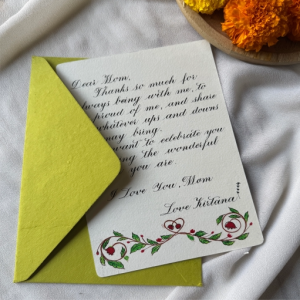 Dear Mom,
Thanks so much for
always being with me, to
proud of me, and share
whatever ups and downs
may bring.
want to celebrate you
the wonderful
you are.
I Love You, Mom
Love Kirtana